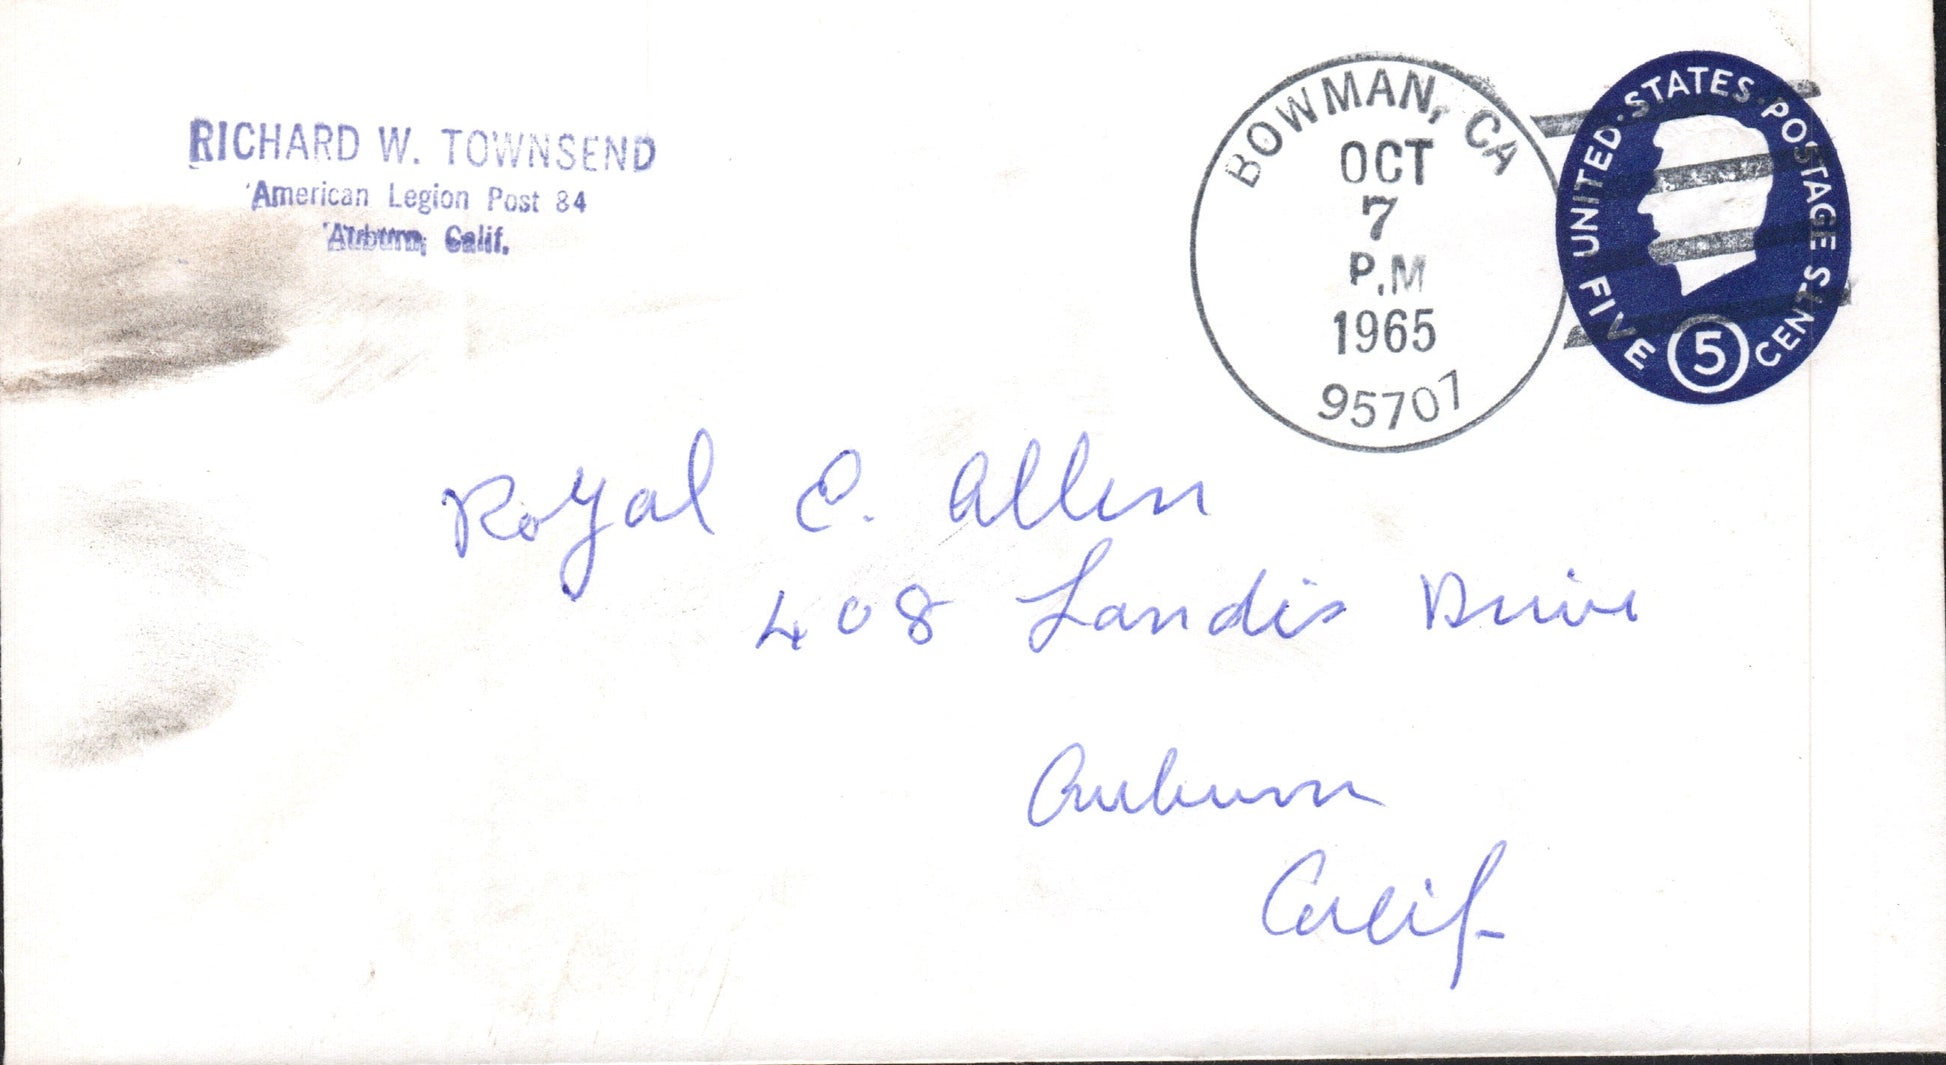 RICHARD W. TOWNSEND
American Legion Post 84
Auburn, Calif.
BOWMAN, CA
OCT
7
P.M
1965
95707
UNITED·STATES·POSTAGE
FIVE 5 CENTS
Royal E. Allen
408 Landis Drive
Auburn
Calif.